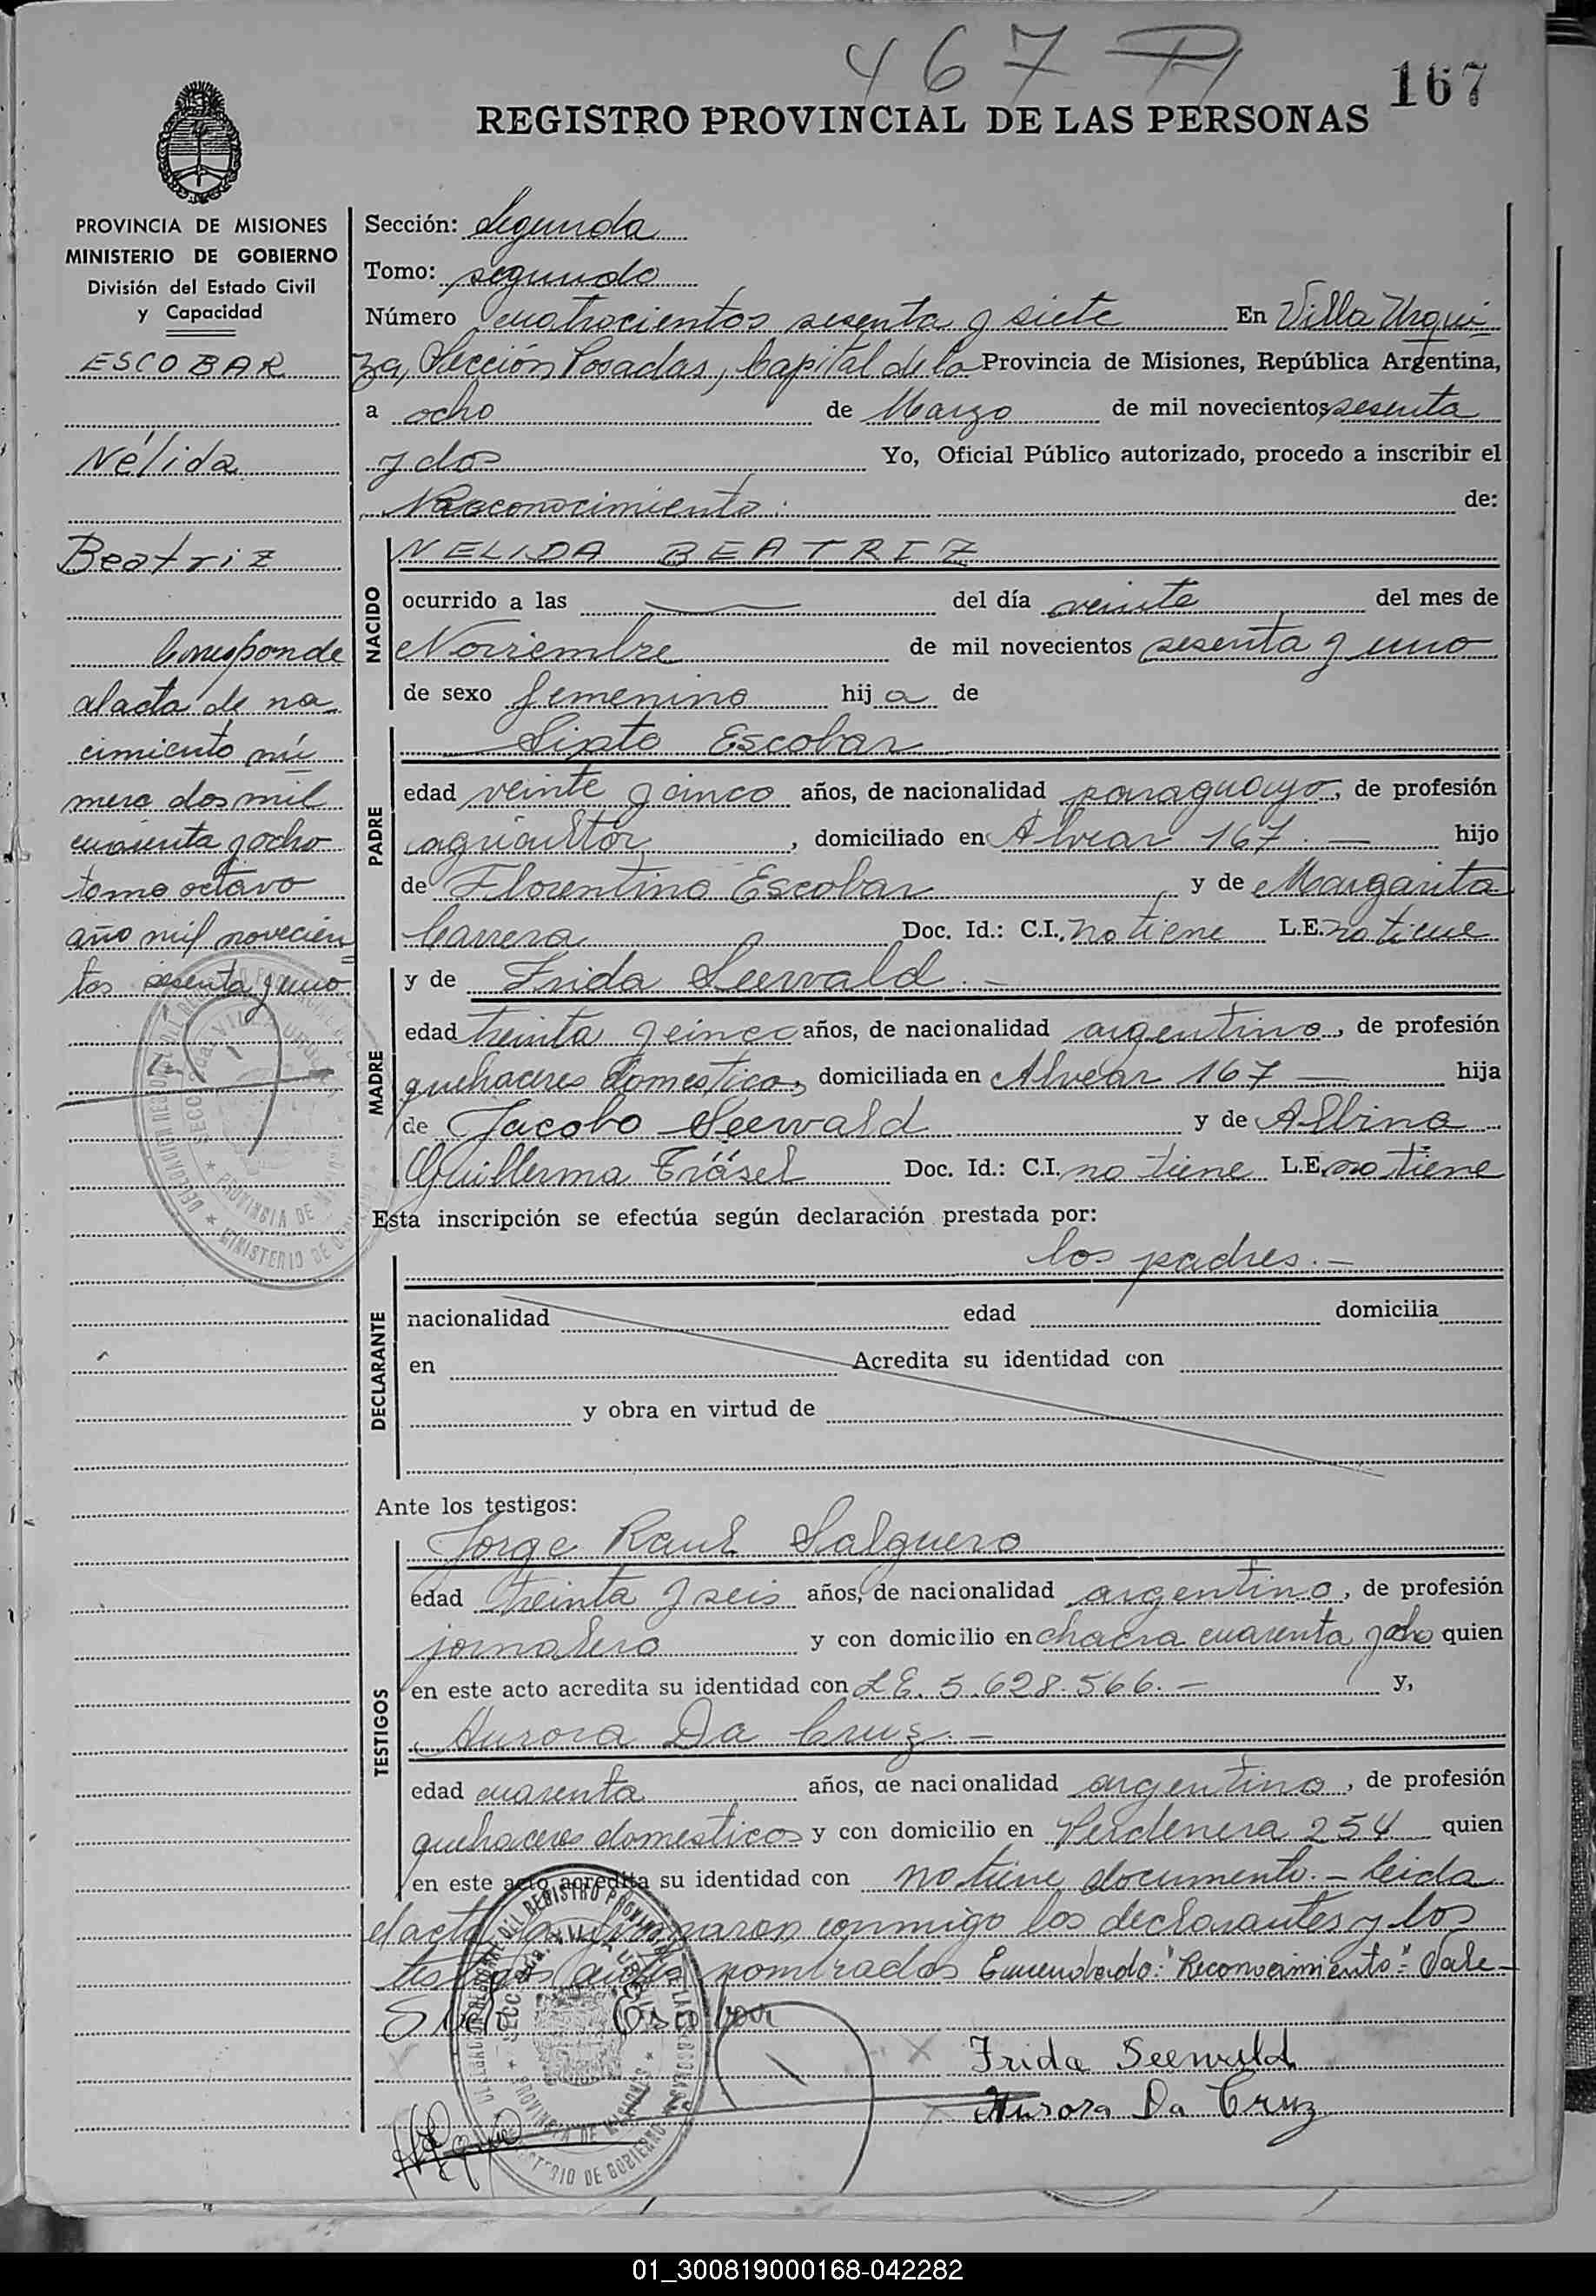 467 R
167
REGISTRO PROVINCIAL DE LAS PERSONAS
PROVINCIA DE MISIONES
MINISTERIO DE GOBIERNO
División del Estado Civil
y Capacidad
ESCOBAR
Nélida
Beatriz
Corresponde
al acta de na
cimiento nú
mero dos mil
cuarenta y ocho
tomo octavo
año mil novecien
tos sesenta y uno
Sección: Segunda
Tomo: segundo
Número cuatrocientos sesenta y siete En Villa Urqui
za, Sección Posadas, Capital de la Provincia de Misiones, República Argentina,
a ocho de Marzo de mil novecientos sesenta
y dos Yo, Oficial Público autorizado, procedo a inscribir el
Reconocimiento. de:
NACIDO
NELIDA BEATRIZ
ocurrido a las — del día veinte del mes de
Noviembre de mil novecientos sesenta y uno
de sexo femenino hij a de
PADRE
Sixto Escobar
edad veinte y cinco años, de nacionalidad paraguayo, de profesión
agricultor, domiciliado en Alvear 167. — hijo
de Florentino Escobar y de Margarita
Carrera Doc. Id.: C.I. no tiene L.E. no tiene
MADRE
y de Frida Seewald. —
edad treinta y cinco años, de nacionalidad argentina, de profesión
quehaceres domesticos, domiciliada en Alvear 167 — hija
de Jacobo Seewald y de Albina
Guillerma Träsel Doc. Id.: C.I. no tiene L.E. no tiene
Esta inscripción se efectúa según declaración prestada por:
los padres. —
DECLARANTE
nacionalidad edad domicilia
en Acredita su identidad con
y obra en virtud de
Ante los testigos:
TESTIGOS
Jorge Raul Salguero
edad treinta y seis años, de nacionalidad argentino, de profesión
jornalero y con domicilio en chacra cuarenta y ocho quien
en este acto acredita su identidad con L.E. 5.628.566. — y,
Aurora Da Cruz. —
edad cuarenta años, de nacionalidad argentina, de profesión
quehaceres domesticos y con domicilio en Perdenera 254 quien
en este acto acredita su identidad con no tiene documento. — Leida
el acta la firmaron conmigo los declarantes y los
testigos nombrados Enmendado: "Reconocimiento": Vale —
Sixto Escobar
Frida Seewald
Aurora Da Cruz
01_300819000168-042282